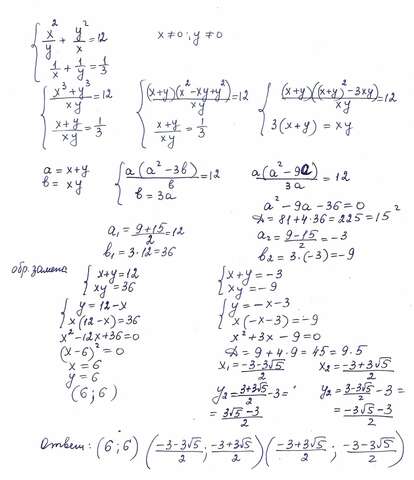 { x²/y + y²/x = 12   x ≠ 0; y ≠ 0
{ 1/x + 1/y = 1/3
{ (x³ + y³)/xy = 12   { (x+y)(x² - xy + y²)/xy = 12   { (x+y)((x+y)² - 3xy)/xy = 12
{ (x+y)/xy = 1/3   { (x+y)/xy = 1/3   { 3(x+y) = xy
a = x+y   { a(a² - 3b)/b = 12   a(a² - 9a)/3a = 12
b = xy   { b = 3a
a² - 9a - 36 = 0
D = 81 + 4·36 = 225 = 15²
a₁ = (9+15)/2 = 12   a₂ = (9-15)/2 = -3
b₁ = 3·12 = 36   b₂ = 3·(-3) = -9
обр. замена { x+y = 12   { x+y = -3
{ xy = 36   { xy = -9
{ y = 12-x   { y = -x-3
{ x(12-x) = 36   { x(-x-3) = -9
x² - 12x + 36 = 0   x² + 3x - 9 = 0
(x-6)² = 0   D = 9 + 4·9 = 45 = 9·5
x = 6   x₁ = (-3-3√5)/2   x₂ = (-3+3√5)/2
y = 6   y₂ = (3+3√5)/2 - 3 =   y₂ = (3-3√5)/2 - 3 =
(6; 6)   = (3√5-3)/2   = (-3√5-3)/2
Ответ: (6; 6) ((-3-3√5)/2; (-3+3√5)/2) ((-3+3√5)/2; (-3-3√5)/2)